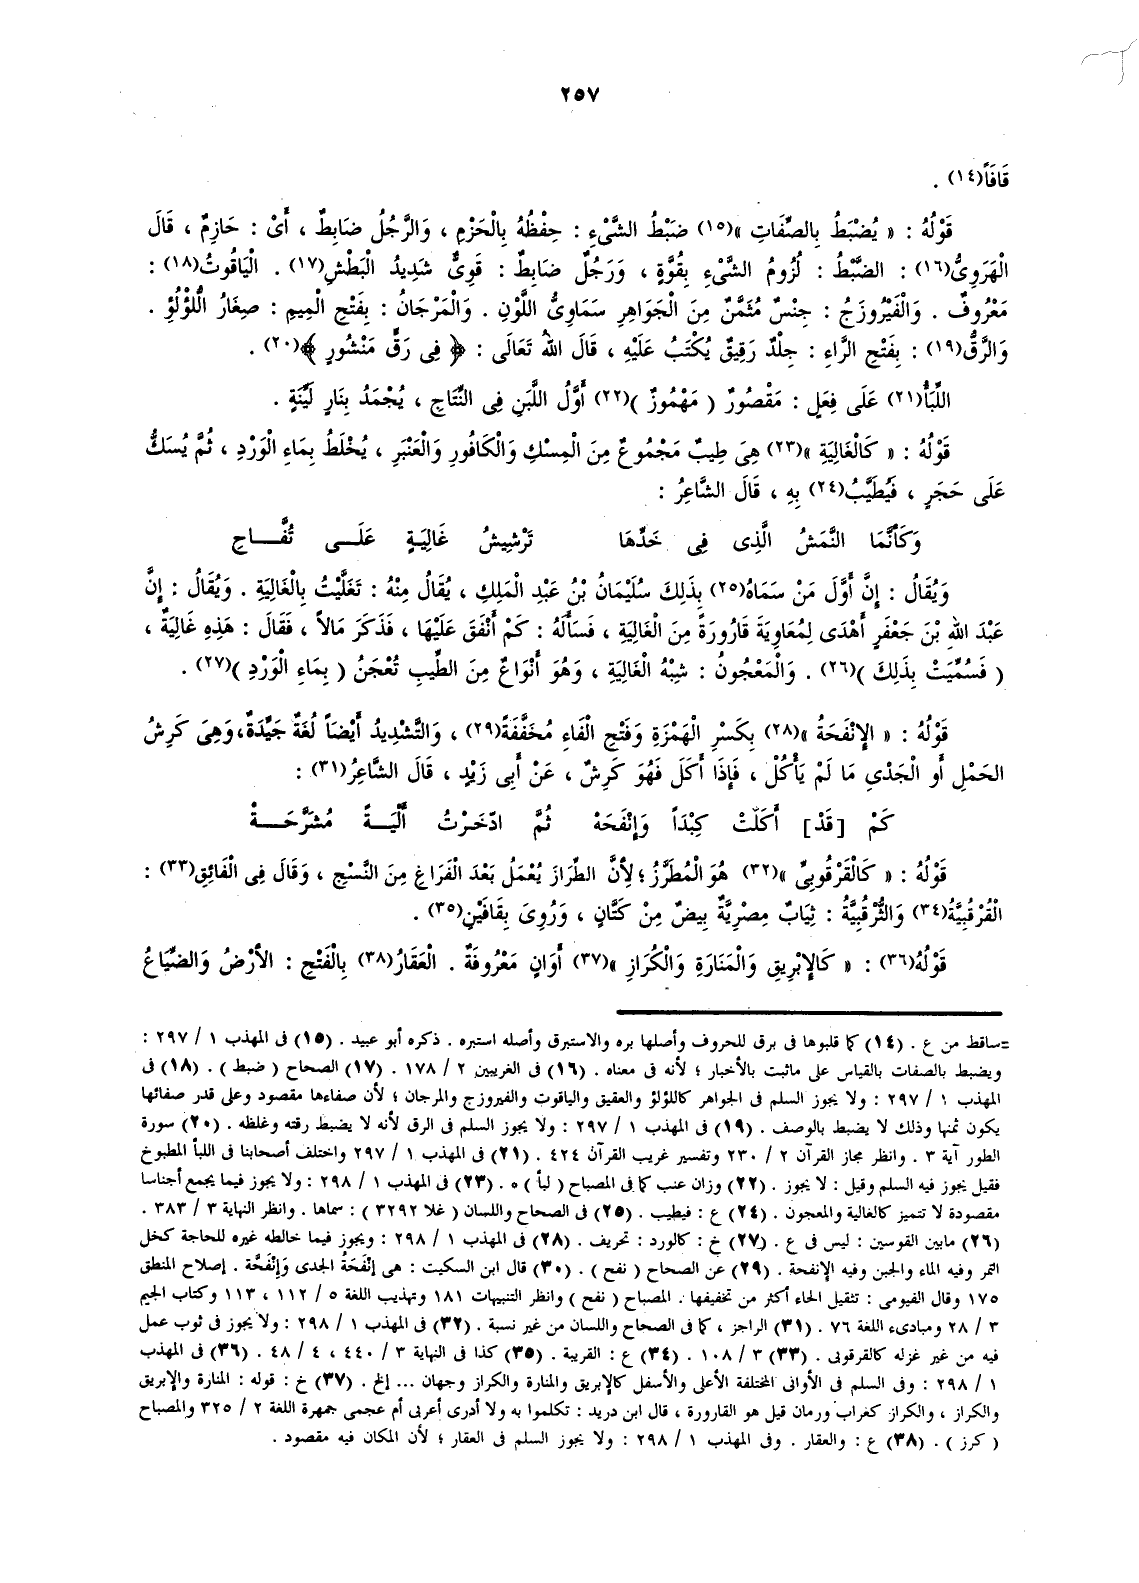 ٢٥٧
قَافَاً(١٤) .
قَوْلُهُ : « يُضْبَطُ بِالصِّفَاتِ »(١٥) ضَبْطُ الشَّىْءِ : حِفْظُهُ بِالْحَزْمِ ، وَالرَّجُلُ ضَابِطٌ ، أَىْ : حَازِمٌ ، قَالَ
الْهَرَوِىُّ(١٦) : الضَّبْطُ : لُزُومُ الشَّىْءِ بِقُوَّةٍ ، وَرَجُلٌ ضَابِطٌ : قَوِىٌّ شَدِيدُ الْبَطْشِ(١٧) . الْيَاقُوتُ(١٨) :
مَعْرُوفٌ . وَالْفَيْرُوزَجُ : جِنْسٌ مُثَمَّنٌ مِنَ الْجَوَاهِرِ سَمَاوِىُّ اللَّوْنِ . وَالْمَرْجَانُ : بِفَتْحِ الْمِيمِ : صِغَارُ اللُّؤْلُؤِ .
وَالرَّقُّ(١٩) : بِفَتْحِ الرَّاءِ : جِلْدٌ رَقِيقٌ يُكْتَبُ عَلَيْهِ ، قَالَ اللهُ تَعَالَى : ﴿ فِى رَقٍّ مَنْشُورٍ ﴾(٢٠) .
اللِّبَأُ(٢١) عَلَى فِعَلٍ : مَقْصُورٌ ( مَهْمُوزٌ )(٢٢) أَوَّلُ اللَّبَنِ فِى النِّتَاجِ ، يُجْمَدُ بِنَارٍ لَيِّنَةٍ .
قَوْلُهُ : « كَالْغَالِيَةِ »(٢٣) هِىَ طِيبٌ مَجْمُوعٌ مِنَ الْمِسْكِ وَالْكَافُورِ وَالْعَنْبَرِ ، يُخْلَطُ بِمَاءِ الْوَرْدِ ، ثُمَّ يُسَكُّ
عَلَى حَجَرٍ ، فَيُطَيَّبُ(٢٤) بِهِ ، قَالَ الشَّاعِرُ :
وَكَأَنَّمَا النَّمَشُ الَّذِى فِى خَدِّهَا تَرْشِيشُ غَالِيَةٍ عَلَــى تُفَّـــاحِ
وَيُقَالُ : إِنَّ أَوَّلَ مَنْ سَمَاهُ(٢٥) بِذَلِكَ سُلَيْمَانُ بْنُ عَبْدِ الْمَلِكِ ، يُقَالُ مِنْهُ : تَغَلَّيْتُ بِالْغَالِيَةِ . وَيُقَالُ : إِنَّ
عَبْدَ اللهِ بْنَ جَعْفَرٍ أَهْدَى لِمُعَاوِيَةَ قَارُورَةً مِنَ الْغَالِيَةِ ، فَسَأَلَهُ : كَمْ أَنْفَقَ عَلَيْهَا ، فَذَكَرَ مَالاً ، فَقَالَ : هَذِهِ غَالِيَةٌ ،
( فَسُمِّيَتْ بِذَلِكَ )(٢٦) . وَالْمَعْجُونُ : شِبْهُ الْغَالِيَةِ ، وَهُوَ أَنْوَاعٌ مِنَ الطِّيبِ تُعْجَنُ ( بِمَاءِ الْوَرْدِ )(٢٧) .
قَوْلُهُ : « الإِنْفَحَةُ »(٢٨) بِكَسْرِ الْهَمْزَةِ وَفَتْحِ الْفَاءِ مُخَفَّفَةً(٢٩) ، وَالتَّشْدِيدُ أَيْضاً لُغَةٌ جَيِّدَةٌ، وَهِىَ كَرِشُ
الحَمْلِ أَو الْجَدْيِ مَا لَمْ يَأْكُلْ ، فَإِذَا أَكَلَ فَهُوَ كَرِشٌ ، عَنْ أَبِى زَيْدٍ ، قَالَ الشَّاعِرُ(٣١) :
كَمْ [قَدْ] أَكَلْتُ كِبْدَاً وَإِنْفَحَهْ ثُمَّ ادَّخَرْتُ أَلْيَــةً مُشَرَّحَــهْ
قَوْلُهُ : « كَالْقَرْقُوبِىِّ »(٣٢) هُوَ الْمُطَرَّزُ ؛ لِأَنَّ الطِّرَازَ يُعْمَلُ بَعْدَ الْفَرَاغِ مِنَ النَّسْجِ ، وَقَالَ فِى الْفَائِقِ(٣٣) :
الْفُرْقُبِيَّةُ(٣٤) وَالثُّرْقُبِيَّةُ : ثِيَابٌ مِصْرِيَّةٌ بِيضٌ مِنْ كَتَّانٍ ، وَرُوِىَ بِقَافَيْنِ(٣٥) .
قَوْلُهُ(٣٦) : « كَالإِبْرِيقِ وَالْمَنَارَةِ وَالْكُرَازِ »(٣٧) أَوَانٍ مَعْرُوفَةٌ . الْعَقَارُ(٣٨) بِالْفَتْحِ : الأَرْضُ وَالضِّيَاعُ
=ساقط من ع . (١٤) كما قلبوها فى برق للحروف وأصلها بره والاستبرق وأصله استبره . ذكره أبو عبيد . (١٥) فى المهذب ١ / ٢٩٧ :
ويضبط بالصفات بالقياس على ماثبت بالأخبار ؛ لأنه فى معناه . (١٦) فى الغريبين ٢ / ١٧٨ . (١٧) الصحاح ( ضبط ) . (١٨) فى
المهذب ١ / ٢٩٧ : ولا يجوز السلم فى الجواهر كاللؤلؤ والعقيق والياقوت والفيروزج والمرجان ؛ لأن صفاءها مقصود وعلى قدر صفائها
يكون ثمنها وذلك لا يضبط بالوصف . (١٩) فى المهذب ١ / ٢٩٧ : ولا يجوز السلم فى الرق لأنه لا يضبط رقته وغلظه . (٢٠) سورة
الطور آية ٣ . وانظر مجاز القرآن ٢ / ٢٣٠ وتفسير غريب القرآن ٤٢٤ . (٢١) فى المهذب ١ / ٢٩٧ واختلف أصحابنا فى اللبأ المطبوخ
فقيل يجوز فيه السلم وقيل : لا يجوز . (٢٢) وزان عنب كما فى المصباح ( لبأ ) ٥ . (٢٣) فى المهذب ١ / ٢٩٨ : ولا يجوز فيما يجمع أجناسا
مقصودة لا تتميز كالغالية والمعجون . (٢٤) ع : فيطيب . (٢٥) فى الصحاح واللسان ( غلا ٣٢٩٢ ) : سماها . وانظر النهاية ٣ / ٣٨٣ .
(٢٦) مابين القوسين : ليس فى ع . (٢٧) خ : كالورد : تحريف . (٢٨) فى المهذب ١ / ٢٩٨ : ويجوز فيما خالطه غيره للحاجة كخل
التمر وفيه الماء والجبن وفيه الإنفحة . (٢٩) عن الصحاح ( نفح ) . (٣٠) قال ابن السكيت : هى إِنْفَحَةُ الجدى وَإِنْفَحَّة . إصلاح المنطق
١٧٥ وقال الفيومى : تثقيل الحاء أكثر من تخفيفها . المصباح ( نفح ) وانظر التنبيهات ١٨١ وتهذيب اللغة ٥ / ١١٢ ، ١١٣ وكتاب الجيم
٣ / ٢٨ ومبادىء اللغة ٧٦ . (٣١) الراجز ، كما فى الصحاح واللسان من غير نسبة . (٣٢) فى المهذب ١ / ٢٩٨ : ولا يجوز فى ثوب عمل
فيه من غير غزله كالقرقوبى . (٣٣) ٣ / ١٠٨ . (٣٤) ع : القريبة . (٣٥) كذا فى النهاية ٣ / ٤٤٠ ، ٤ / ٤٨ . (٣٦) فى المهذب
١ / ٢٩٨ : وفى السلم فى الأوانى المختلفة الأعلى والأسفل كالإبريق والمنارة والكراز وجهان ... إلخ . (٣٧) خ : قوله : المنارة والإبريق
والكراز ، والكراز كغراب ورمان قيل هو القارورة ، قال ابن دريد : تكلموا به ولا أدرى أعربى أم عجمى جمهرة اللغة ٢ / ٣٢٥ والمصباح
( كرز ) . (٣٨) ع : والعقار . وفى المهذب ١ / ٢٩٨ : ولا يجوز السلم فى العقار ؛ لأن المكان فيه مقصود .